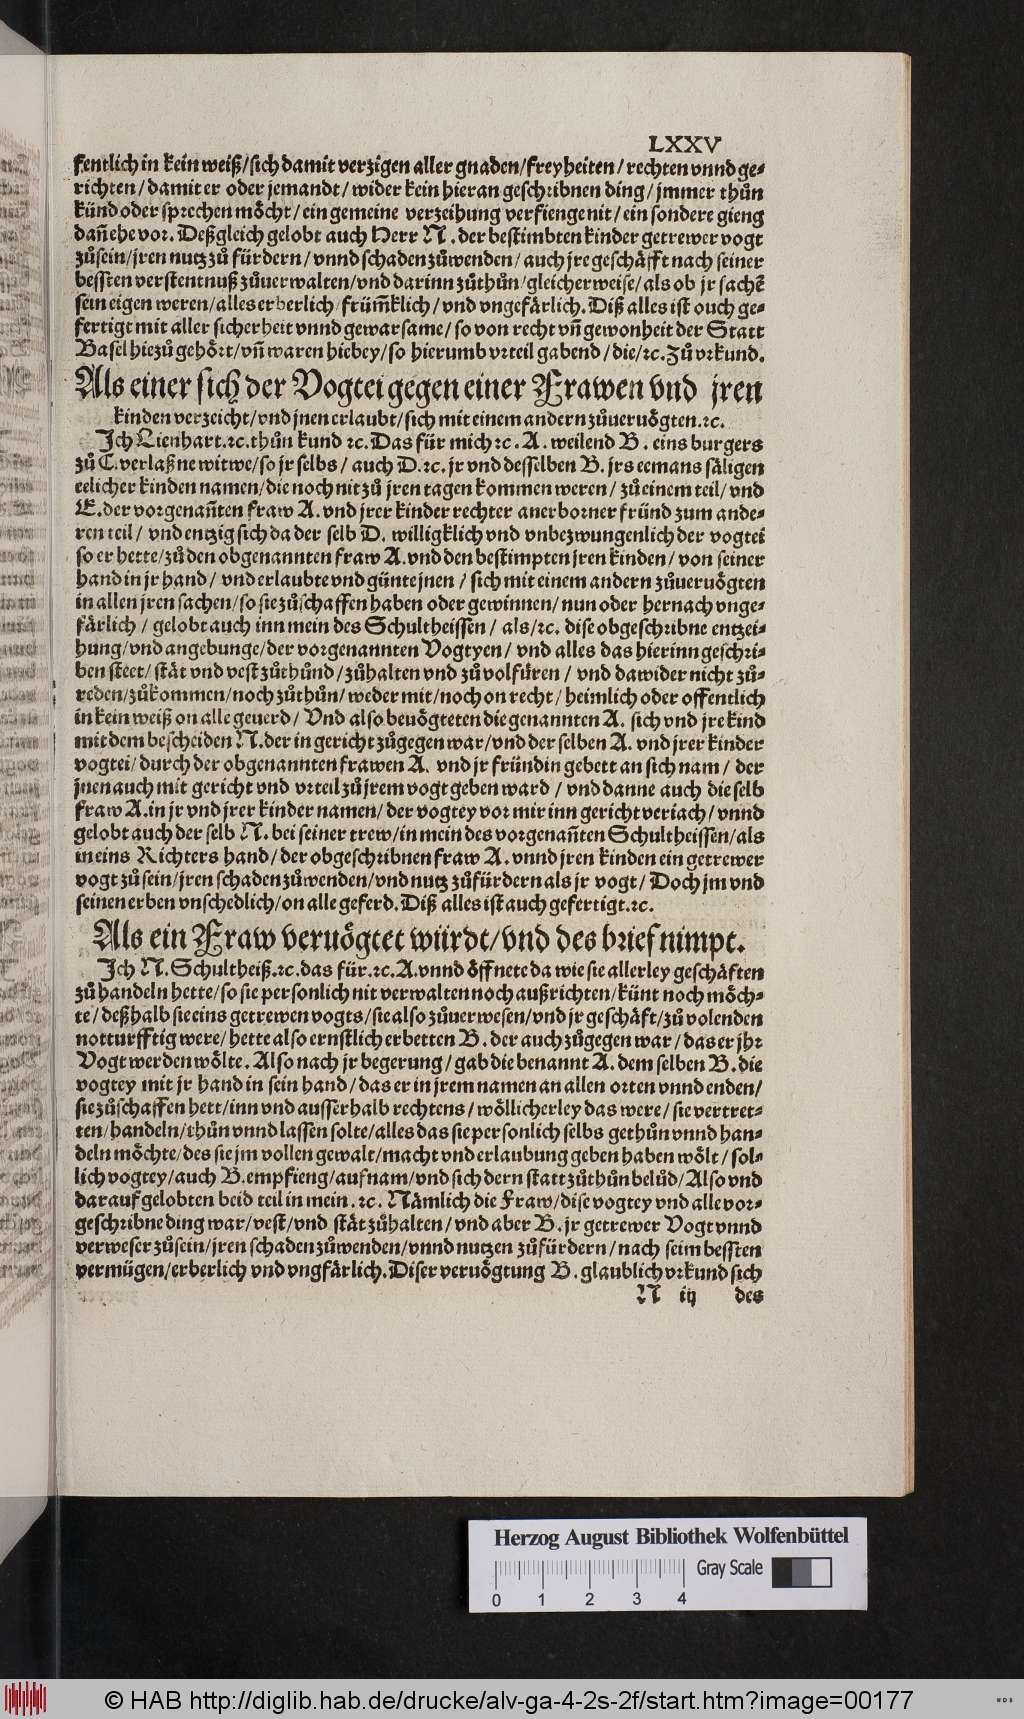 LXXV
fentlich in kein weiß/sich damit verzigen aller gnaden/freyheiten/rechten vnnd ge⸗
richten/damit er oder jemandt/wider kein hieran geschribnen ding/jmmer thůn
künd oder sprechen möcht/ein gemeine verzeihung verfienge nit/ein sondere gieng
dañ ehe vor. Deßgleich gelobt auch Herr N. der bestimbten kinder getrewer vogt
zůsein/jren nutz zů fürdern/vnnd schaden zůwenden/auch jre geschäfft nach seiner
bessten verstentnuß zůuerwalten/vnd darinn zůthůn/gleicherweise/als ob jr sachẽ
sein eigen weren/alles erberlich/früm̃klich/vnd vngefärlich. Diß alles ist ouch ge⸗
fertigt mit aller sicherheit vnnd gewarsame/so von recht vñ gewonheit der Statt
Basel hiezů gehört/vñ waren hiebey/so hierumb vrteil gabend/die/ꝛc. Zů vrkund.
Als einer sich der Vogtei gegen einer Frawen vnd jren
kinden verzeicht/vnd jnen erlaubt/sich mit einem andern zůueruögten.ꝛc.
Jch Lienhart.ꝛc.thůn kund ꝛc. Das für mich ꝛc. A. weilend B. eins burgers
zů C. verlaßne witwe/so jr selbs/auch D.ꝛc. jr vnd desselben B. jrs eemans säligen
eelicher kinden namen/die noch nit zů jren tagen kommen weren/zů einem teil/vnd
E. der vorgenañten fraw A. vnd jrer kinder rechter anerborner fründ zum ande⸗
ren teil/vnd entzig sich da der selb D. willigklich vnd vnbezwungenlich der vogtei
so er hette/zů den obgenannten fraw A. vnd den bestimpten jren kinden/von seiner
hand in jr hand/vnd erlaubte vnd günte jnen/sich mit einem andern zůueruögten
in allen jren sachen/so sie zůschaffen haben oder gewinnen/nun oder hernach vnge⸗
färlich/gelobt auch inn mein des Schultheissen/als/ꝛc. dise obgeschribne entzei⸗
hung/vnd angebunge/der vorgenannten Vogtyen/vnd alles das hierinn geschri⸗
ben steet/stät vnd vest zůthůnd/zůhalten vnd zů volfüren/vnd dawider nicht zů⸗
reden/zůkommen/noch zůthůn/weder mit/noch on recht/heimlich oder offentlich
in kein weiß on alle geuerd/Vnd also beuögteten die genannten A. sich vnd jre kind
mit dem bescheiden N. der in gericht zůgegen war/vnd der selben A. vnd jrer kinder
vogtei/durch der obgenannten frawen A. vnd jr fründin gebett an sich nam/der
jnen auch mit gericht vnd vrteil zů jrem vogt geben ward/vnd danne auch die selb
fraw A. in jr vnd jrer kinder namen/der vogtey vor mir inn gericht veriach/vnnd
gelobt auch der selb N. bei seiner trew/in mein des vorgenañten Schultheissen/als
in eins Richters hand/der obgeschribnen fraw A. vnnd jren kinden ein getrewer
vogt zů sein/jren schaden zůwenden/vnd nutz zůfürdern als jr vogt/Doch jm vnd
seinen erben vnschedlich/on alle geferd. Diß alles ist auch gefertigt.ꝛc.
Als ein Fraw veruögtet würdt/vnd des brief nimpt.
Jch N. Schultheiß.ꝛc.das für.ꝛc.A.vnnd öffnete da wie sie allerley geschäften
zů handeln hette/so sie personlich nit verwalten noch außrichten/künt noch möch⸗
te/deßhalb sie eins getrewen vogts/sie also zůuerwesen/vnd jr geschäft/zů volenden
notturfftig were/hette also ernstlich erbetten B. der auch zůgegen war/das er jhr
Vogt werden wölte. Also nach jr begerung/gab die benannt A. dem selben B. die
vogtey mit jr hand in sein hand/das er in jrem namen an allen orten vnnd enden/
sie zůschaffen hett/inn vnd ausserhalb rechtens/wöllicherley das were/sie vertret⸗
ten/handeln/thůn vnnd lassen solte/alles das sie personlich selbs gethůn vnnd han⸗
deln möchte/des sie jm vollen gewalt/macht vnd erlaubung geben haben wölt/sol⸗
lich vogtey/auch B. empfieng/auf nam/vnd sich dern statt zůthůn belůd/Also vnd
darauf gelobten beid teil in mein.ꝛc. Nämlich die Fraw/dise vogtey vnd alle vor⸗
geschribne ding war/vest/vnd stät zůhalten/vnd aber B. jr getrewer Vogt vnnd
verweser zůsein/jren schaden zůwenden/vnnd nutzen zůfürdern/nach seim bessten
vermügen/erberlich vnd vngfärlich. Diser veruögtung B. glaublich vrkund sich
N iij des
Herzog August Bibliothek Wolfenbüttel
Gray Scale
0 1 2 3 4
© HAB http://diglib.hab.de/drucke/alv-ga-4-2s-2f/start.htm?image=00177